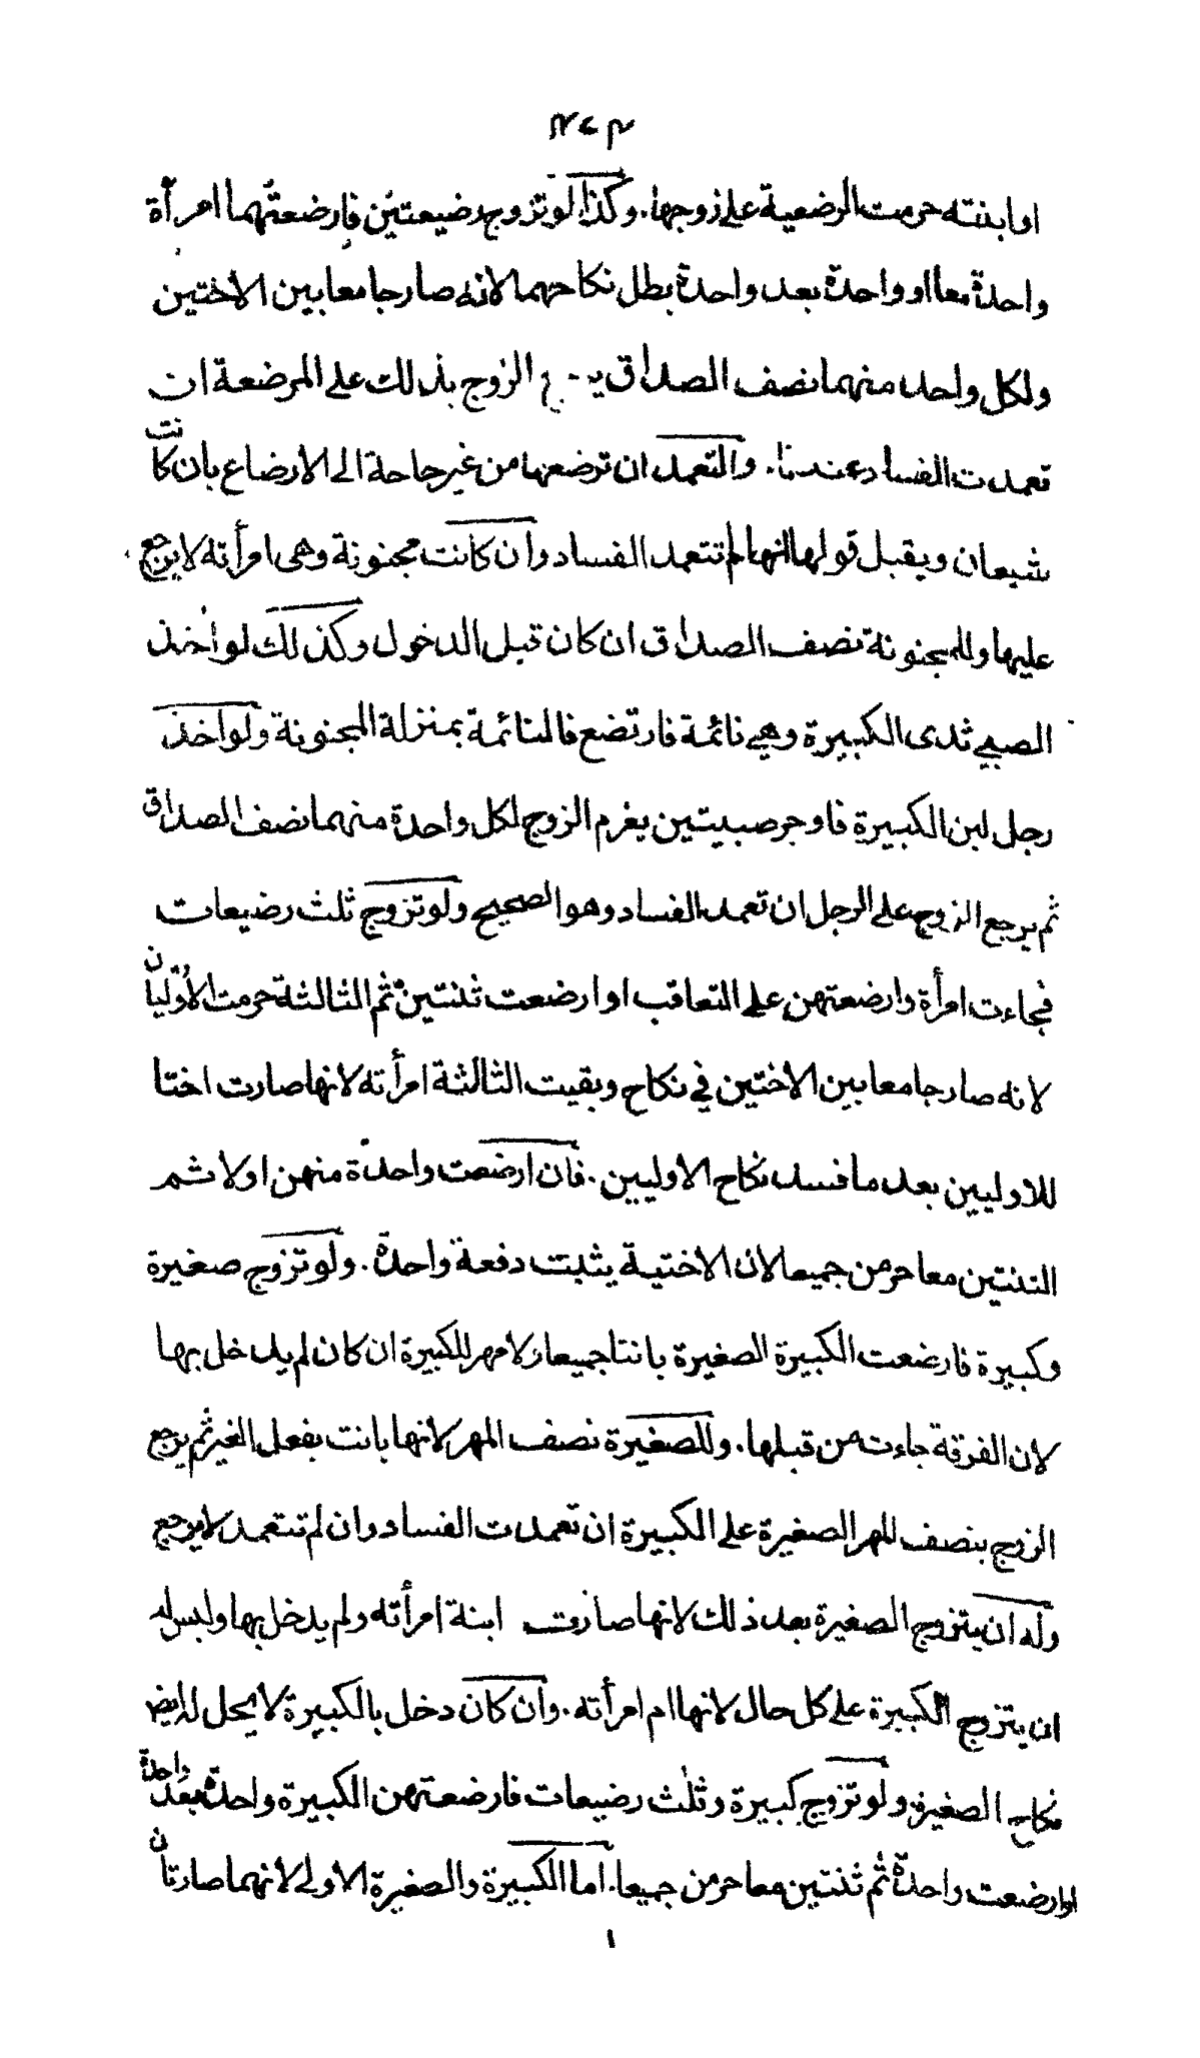 او ابنته حرمت الرضعية على زوجها. وكذا لو تزوج رضيعتين فارضعتهما امرأة
واحدة معا او واحدة بعد واحدة بطل نكاحهما لانه صار جامعا بين الاختين
ولكل واحد منهما نصف الصداق الزوج بذلك على المرضعة ان
تعمدت الفساد عندنا. والتعمد ان ترضعها من غير حاجة الى الارضاع بان كانت
شبعان ويقبل قولها انها لم تتعمد الفساد وان كانت مجنونة وهى امرأته لا يرجع
عليها وللمجنونة نصف الصداق ان كان قبل الدخول وكذلك لو اخذ
الصبي ثدى الكبيرة وهي نائمة فارتضع فالنائمة بمنزلة المجنونة ولو اخذ
رجل لبن الكبيرة فاوجر صبيتين يغرم الزوج لكل واحدة منهما نصف الصداق
ثم يرجع الزوج على الرجل ان تعمد الفساد وهو الصحيح ولو تزوج ثلث رضيعات
فجاءت امرأة وارضعتهن على التعاقب او ارضعت ثنتين ثم الثالثة حرمت الاوليان
لانه صار جامعا بين الاختين في نكاح وبقيت الثالثة امرأته لانها صارت اختا
للاوليين بعد ما فسد نكاح الاوليين. فان ارضعت واحدة منهن اولا ثم
الثنتين معا حرمن جميعا لان الاختية يثبت دفعة واحدة. ولو تزوج صغيرة
وكبيرة فارضعت الكبيرة الصغيرة بانتا جميعا ولا مهر للكبيرة ان كان لم يدخل بها
لان الفرقة جاءت من قبلها. وللصغيرة نصف المهر لانها بانت بفعل الغير ثم يرجع
الزوج بنصف المهر الصغيرة على الكبيرة ان تعمدت الفساد وان لم تتعمد لا يرجع
وله ان يتزوج الصغيرة بعد ذلك لانها صارت ابنة امرأته ولم يدخل بها وليس له
ان يتزوج الكبيرة على كل حال لانها ام امرأته. وان كان دخل بالكبيرة لا يحل له ايضا
نكاح الصغيرة ولو تزوج كبيرة وثلث رضيعات فارضعتهن الكبيرة واحدة بعد واحدة
او ارضعت واحدة ثم ثنتين معا حرمن جميعا. اما الكبيرة والصغيرة الاولى لانهما صارتان